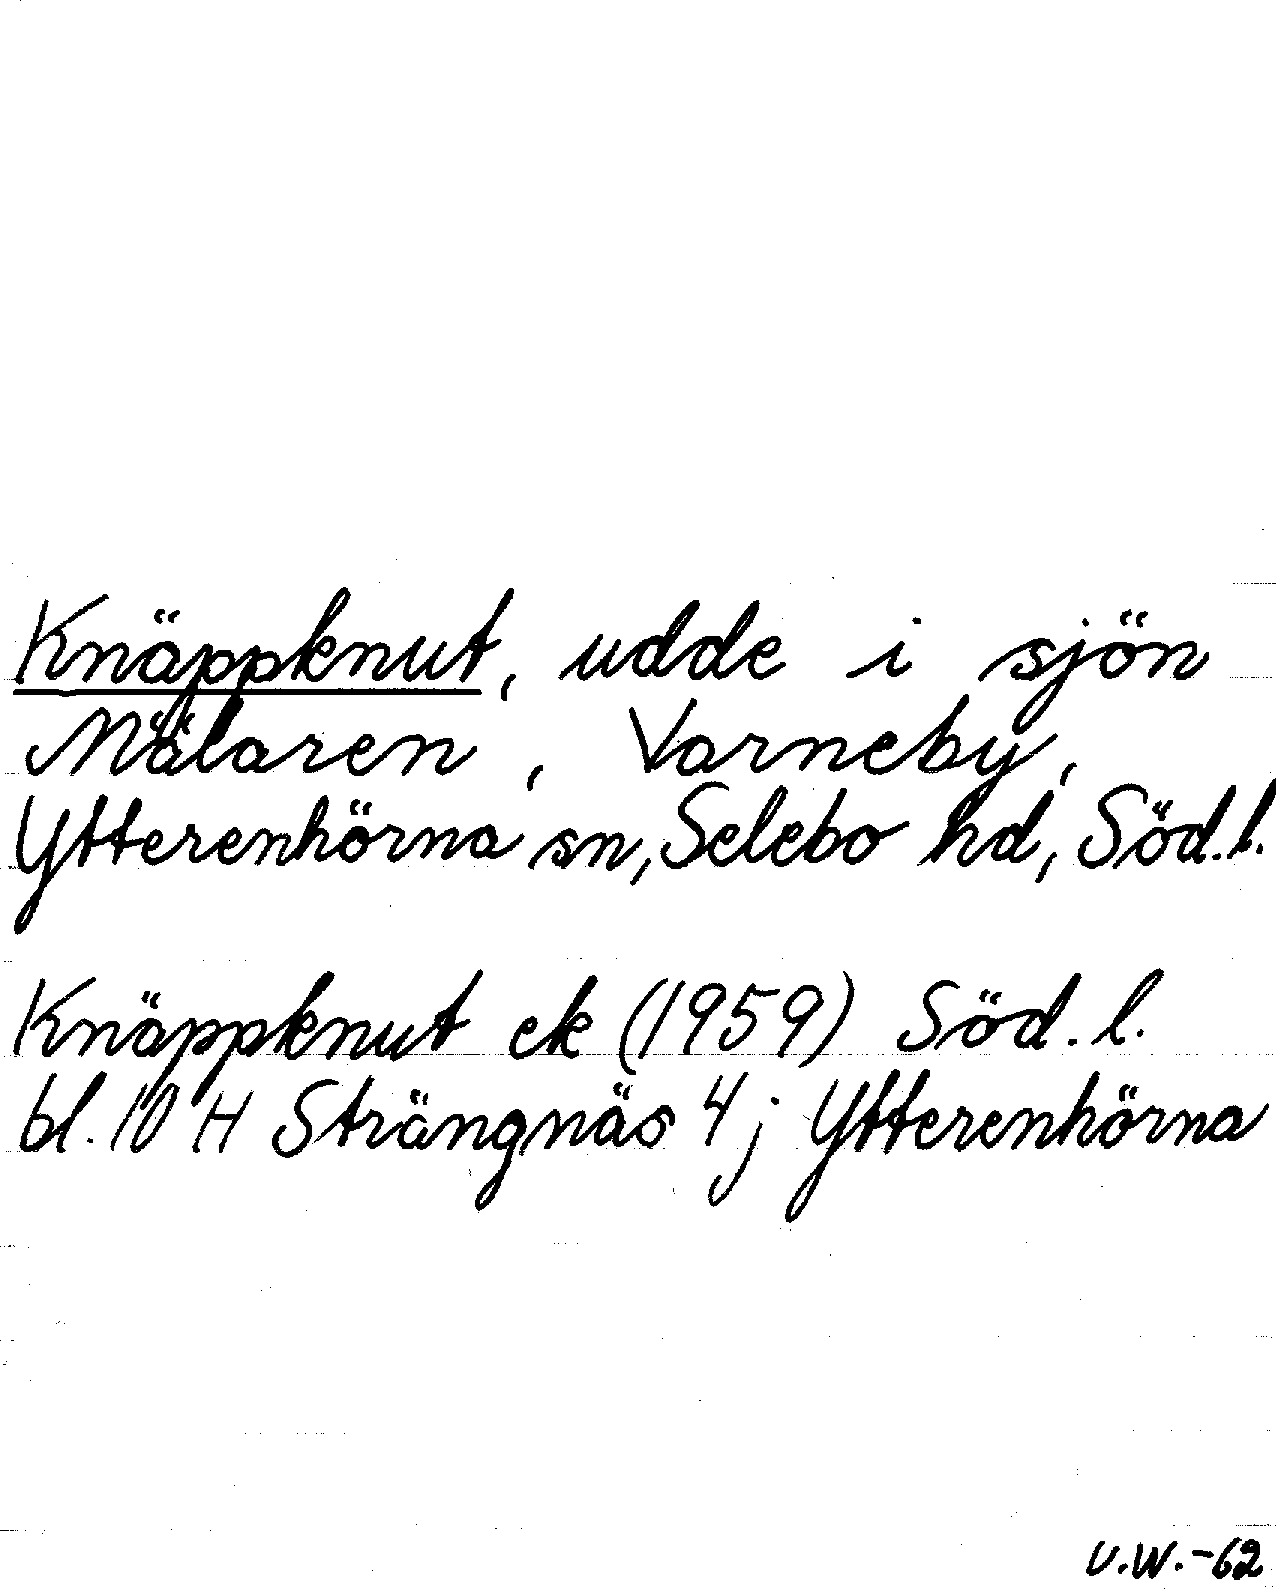 Knäppknut, udde i sjön
Mälaren, Varneby,
Ytterenhörna sn, Selebo hd, Söd.l.
Knäppknut ek (1959) Söd.l.
bl. 10 H Strängnäs 4 j Ytterenhörna
U.W.-62